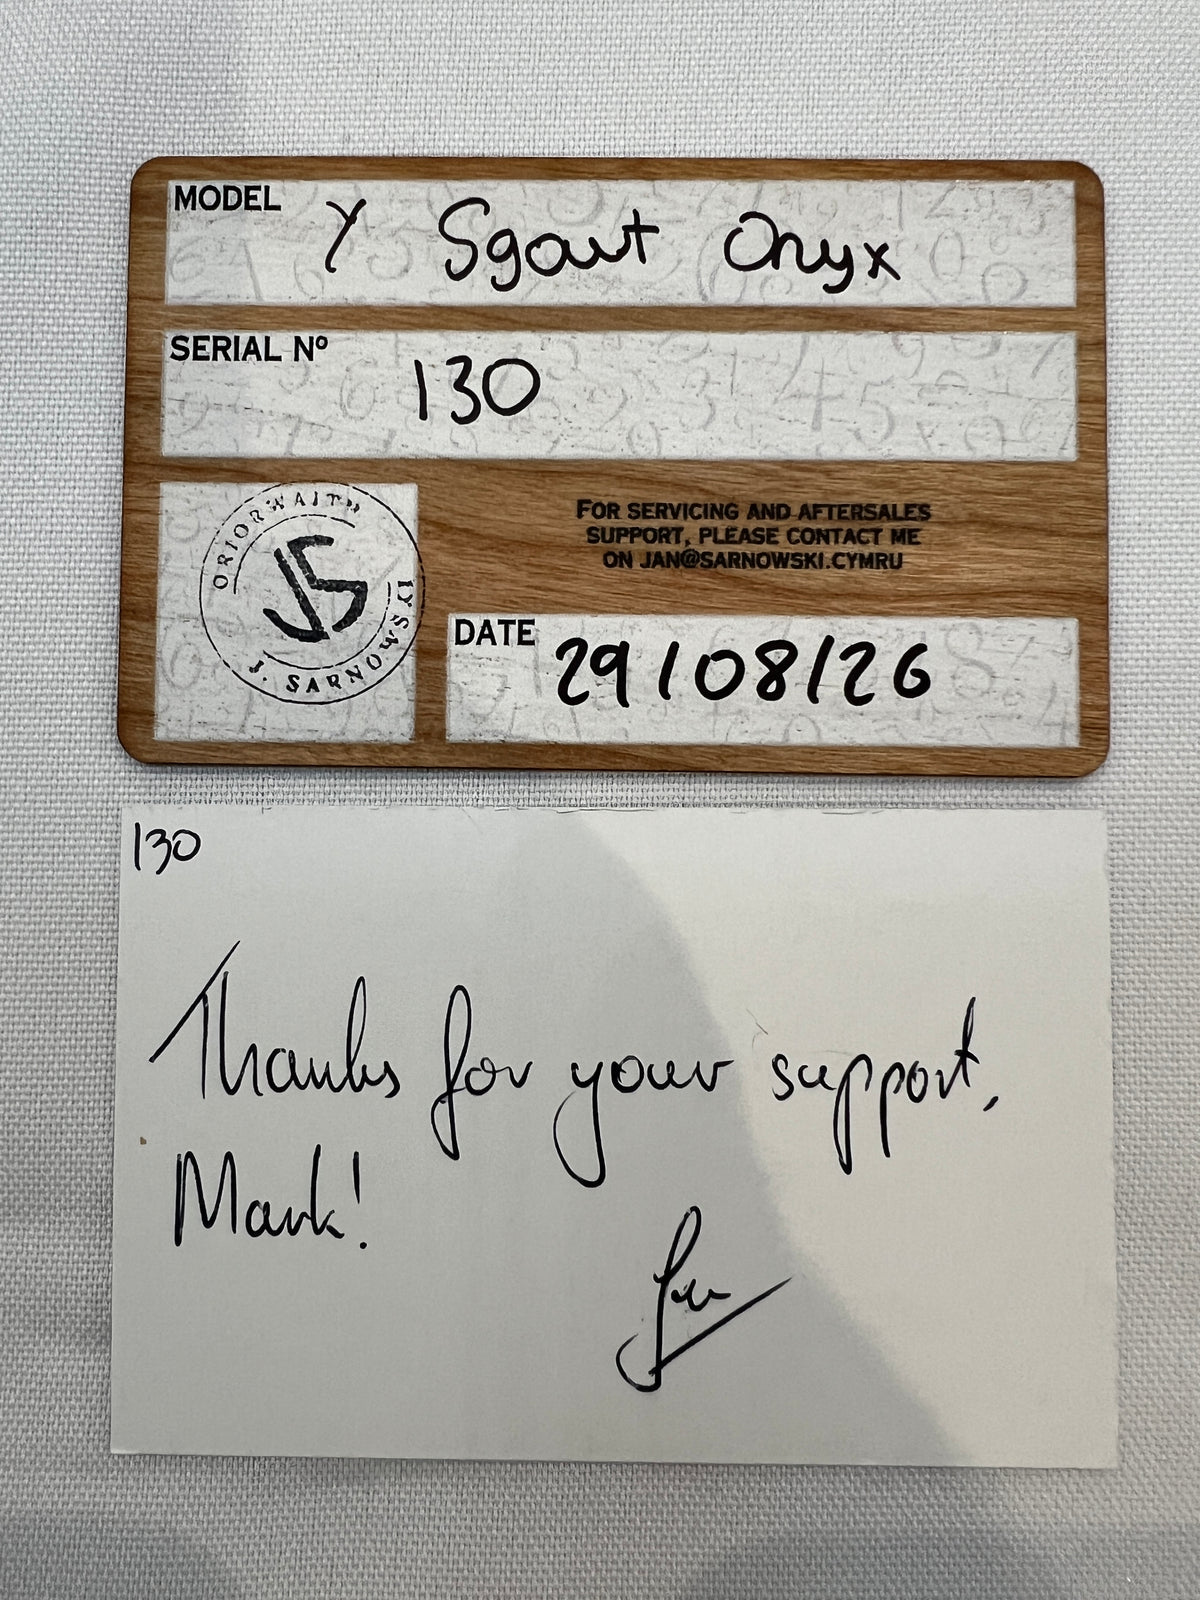 MODEL Y Sgowt Onyx
SERIAL Nº 130
ORIORWAITH
JS
J. SARNOWSKI
FOR SERVICING AND AFTERSALES
SUPPORT, PLEASE CONTACT ME
ON JAN@SARNOWSKI.CYMRU
DATE 29/08/26
130
Thanks for your support,
Mark!
Jan